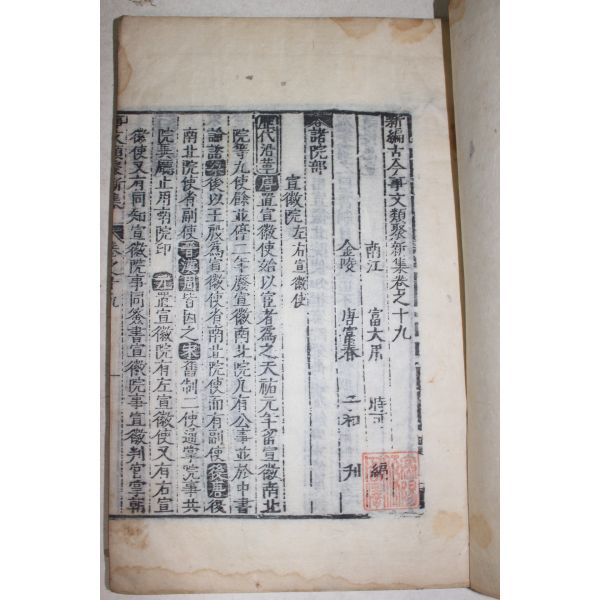 新編古今事文類聚新集卷之十九
南江 富大用 時可 編
金陵 唐富春 子和 刋
諸院部
宣徽院左右宣徽使
歷代沿革唐置宣徽使始以宦者爲之天祐元年留宣徽南北
院等九使餘並停二年廢宣徽南北院凡有公事並於中書
論諮梁後以王殷爲宣徽使者南北院使而有副使後唐復
南北院使者副使晉漢周皆因之宋舊制二使通掌院事共
院異廳止用南院印 元置宣徽院有左宣徽使又有右宣
徽使又有同知宣徽院事同簽書宣徽院事宣徽判官掌朝
事文類聚新集 卷之十九